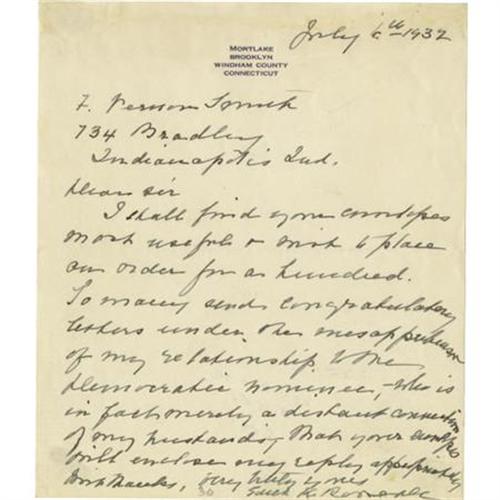 July 6th 1932
MORTLAKE
BROOKLYN
WINDHAM COUNTY
CONNECTICUT
F. Vernon Smith
734 Bradley
Indianapolis Ind.
Dear Sir
I shall find your envelopes
most useful & wish to place
an order for a hundred.
So many send congratulatory
letters under the misapprehension
of my relationship to the
Democratic nominee, who is
in fact merely a distant connection
of my husband's, that your envelopes
will enclose my reply appropriately
With thanks, very truly yours
Edith K. Roosevelt